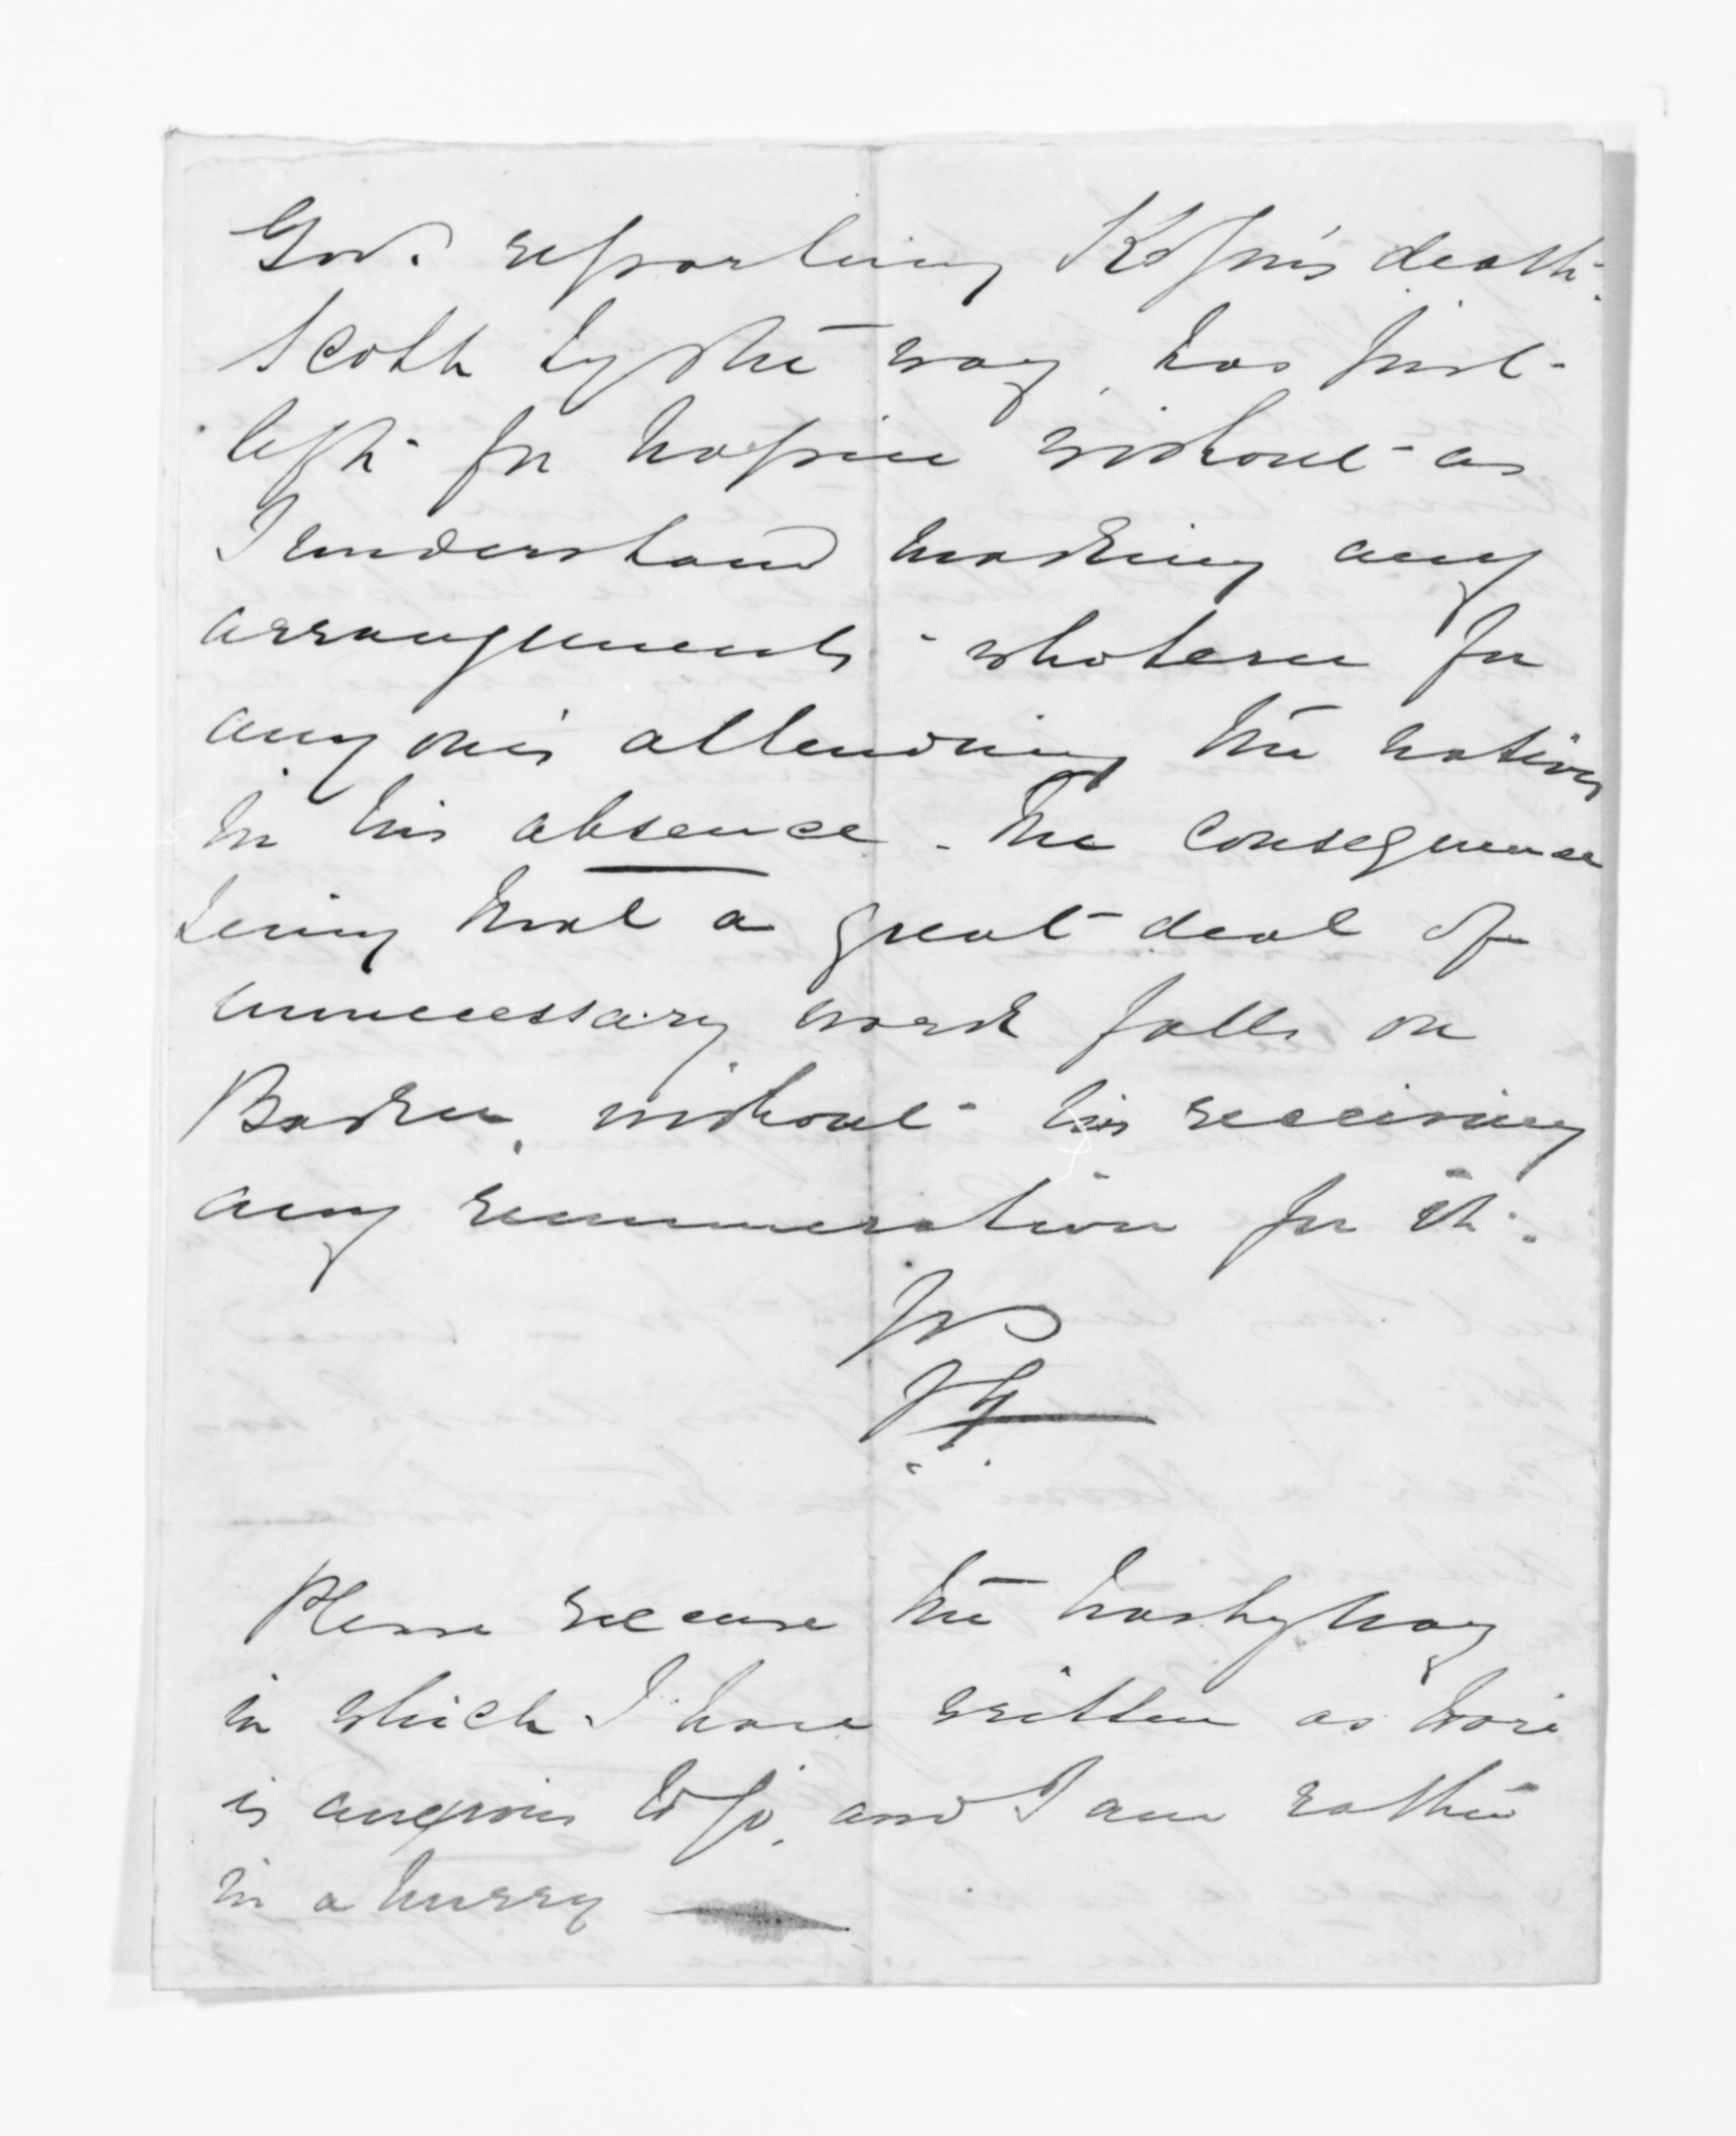 Govt. reporting Kopu's death.
Scott by the way, has just
left for Napier without as
I understand making any
arrangements whatever for
any one's attending the natives
in his absence. The consequence
being that a great deal of
unnecessary work falls on
Baker, without his receiving
any remuneration for it.
Please excuse the hasty way
in which I have written as
is anxious to go, and I am rather
in a hurry